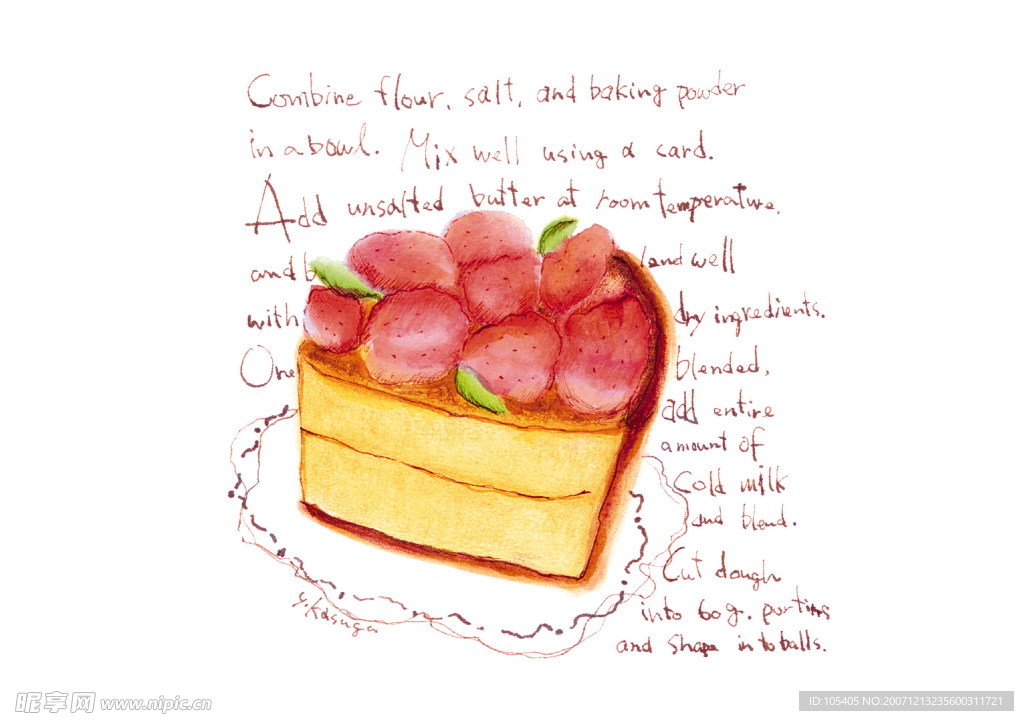 Combine flour, salt, and baking powder
in a bowl. Mix well using a card.
Add unsalted butter at room temperature.
and b land well
with dry ingredients.
One blended,
add entire
amount of
Cold milk
and blend.
Cut dough
into 60g. portins
and shape in to balls.
y.kasuga
昵享网 www.nipic.cn
ID:105405 NO:20071213235600311721